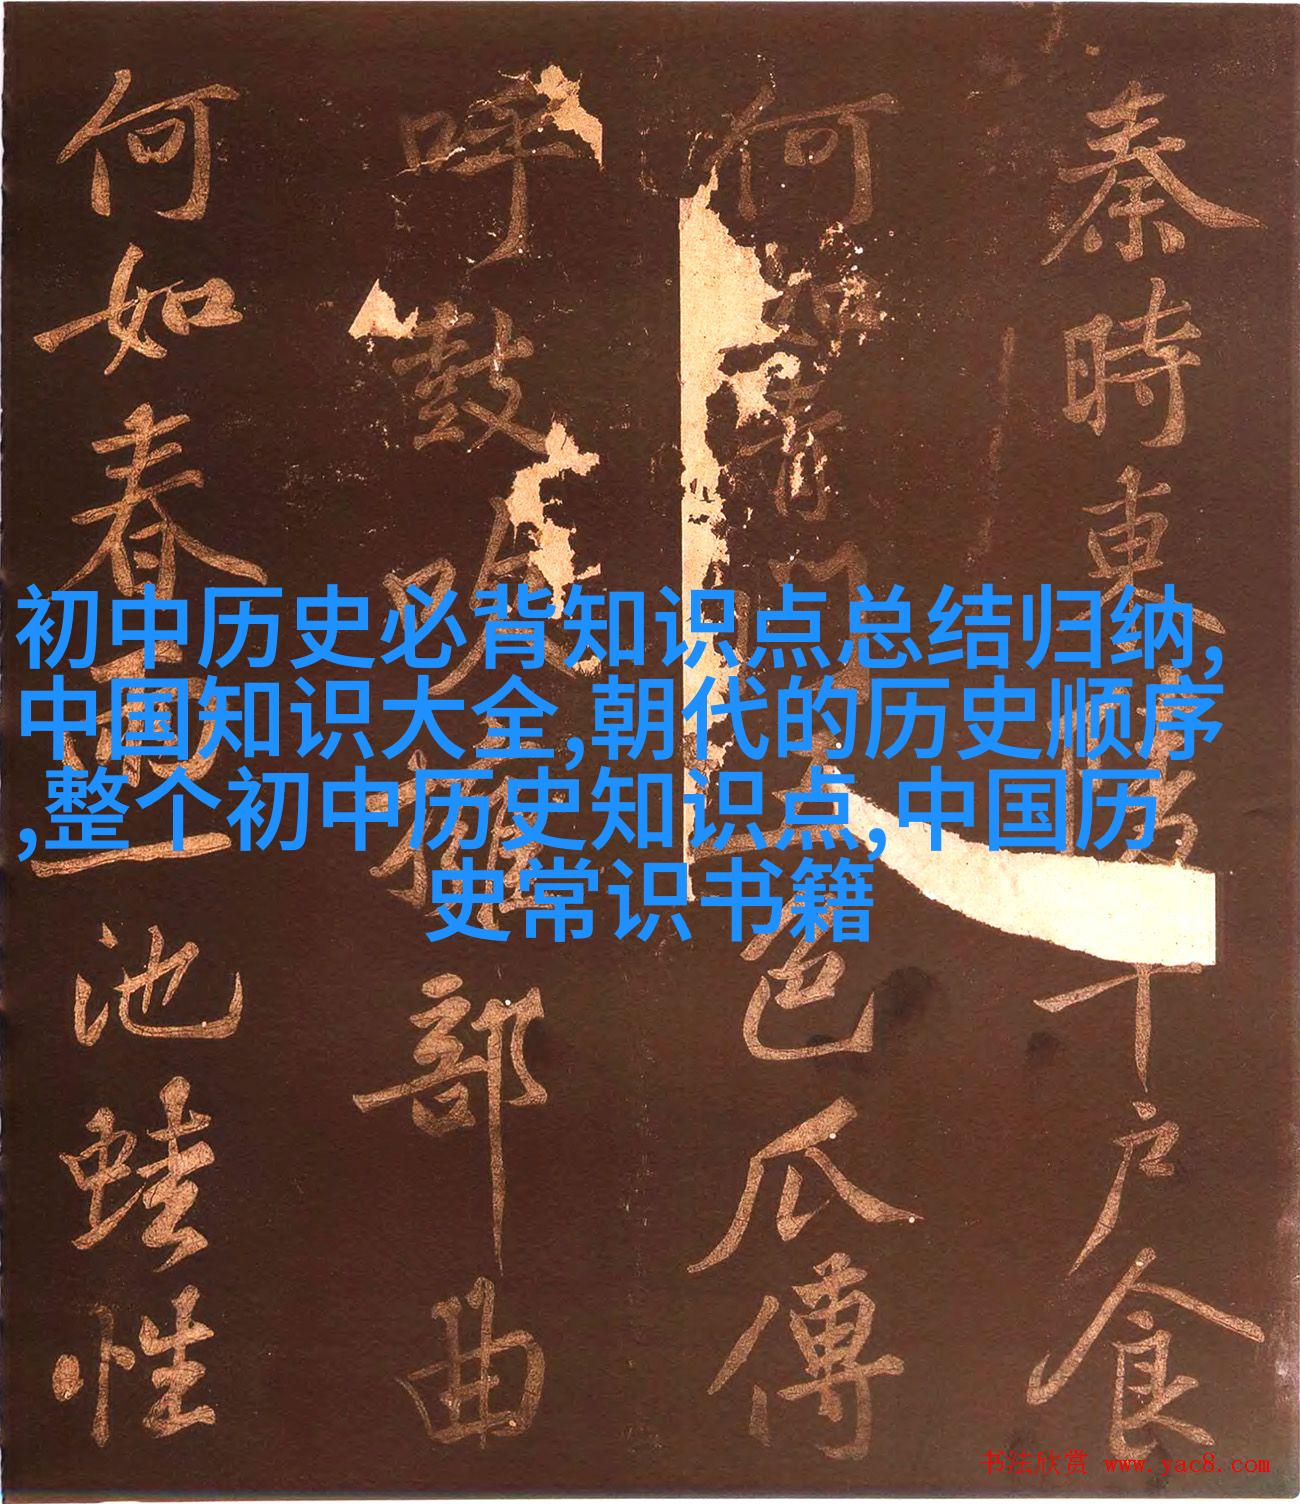 秦時東千戶食
何如青門色瓜傅
呼鼓吹擁部曲
何如春雨一池蛙性
初中历史必背知识点总结归纳,
中国知识大全,朝代的历史顺序
,整个初中历史知识点,中国历
史常识书籍
书法欣赏 www.yac8.com